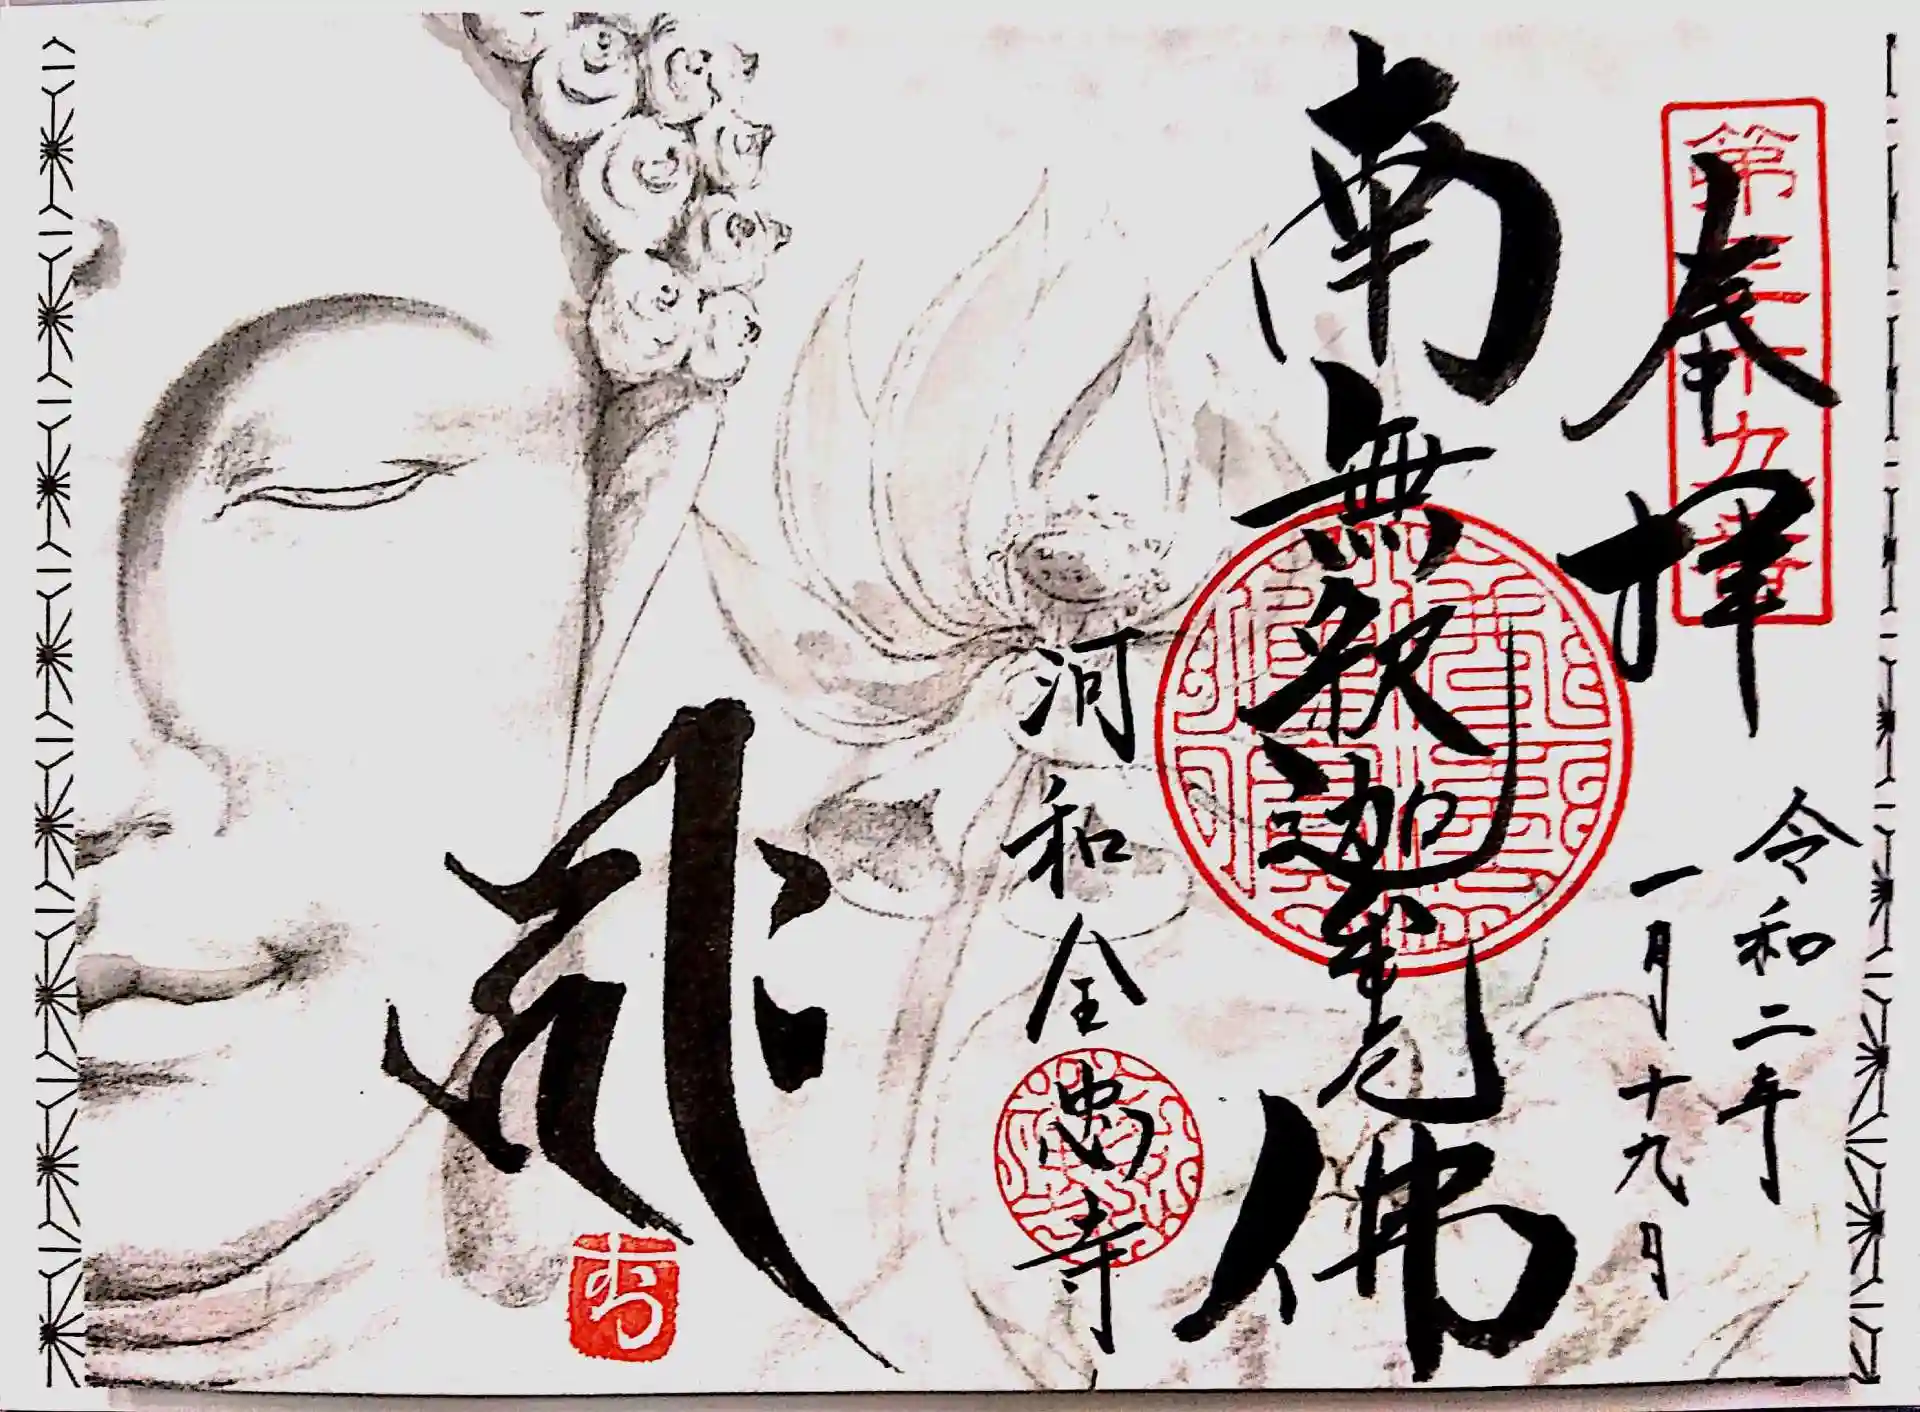 第三十九番
奉拝
令和二年
一月十九日
南無釈迦牟尼佛
河和 全忠寺